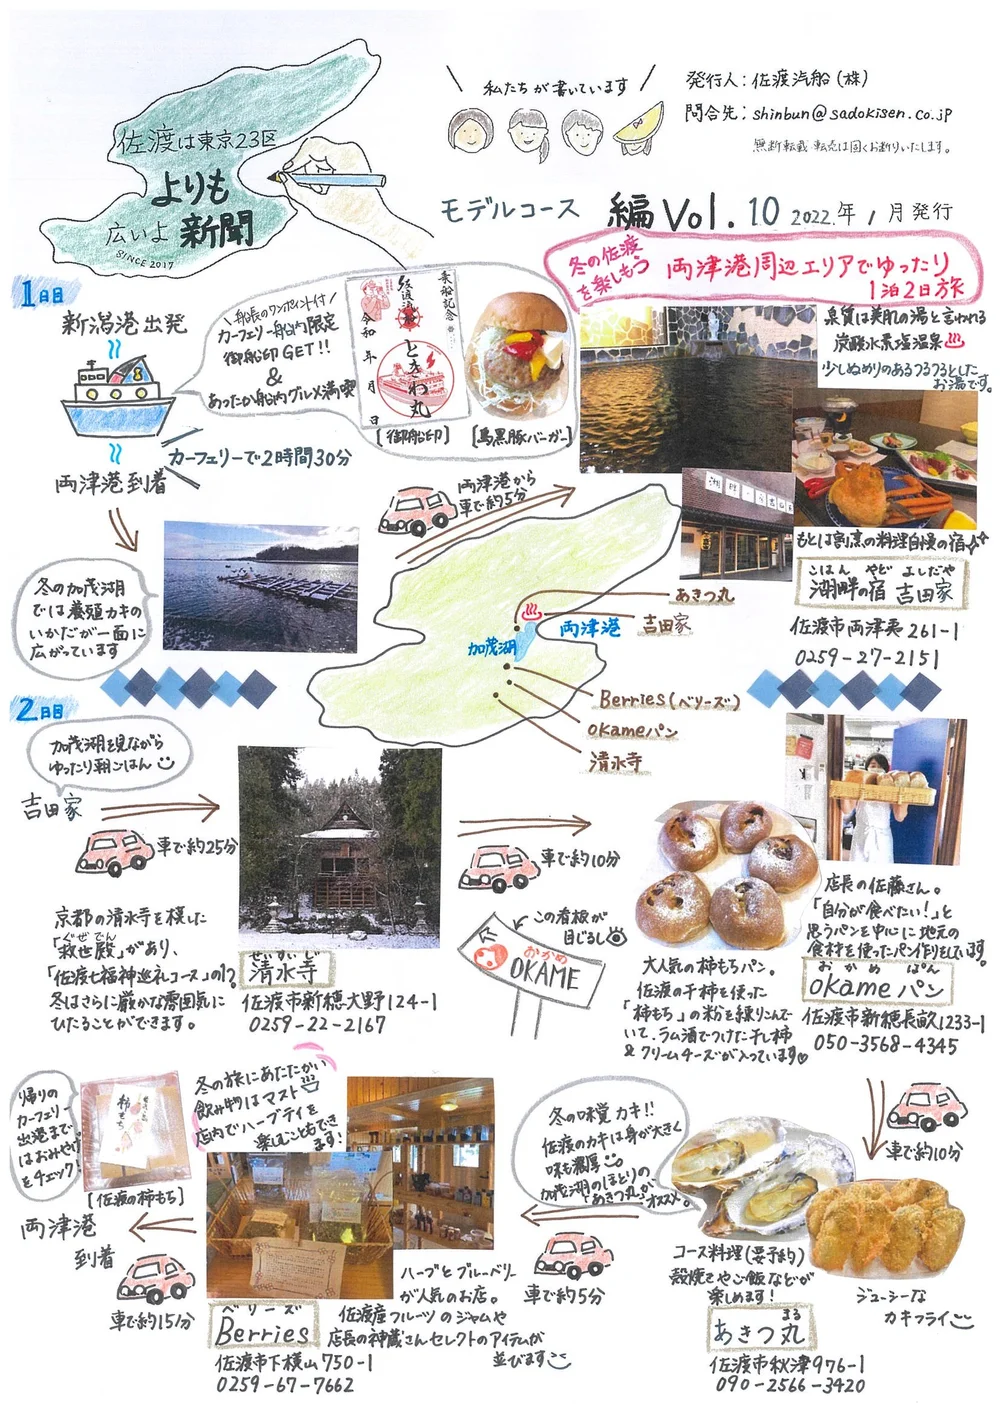 佐渡は東京23区
よりも
広いよ 新聞
SINCE 2017
私たちが書いています
発行人：佐渡汽船（株）
問合先：shinbun@sadokisen.co.jp
無断転載 転売は固くお断りいたします。
モデルコース 編 Vol.10 2022年1月発行
冬の佐渡
を楽しもう
両津港周辺エリアでゆったり
1泊2日旅
1日目
新潟港出発
カーフェリーで2時間30分
両津港到着
船長のワンポイント付
カーフェリー船内限定
御船印GET!!
&
あったか船内グルメ満喫
乗船記念
佐渡汽船
ときわ丸
令和 年 月 日
[御船印]
[島黒豚バーガー]
両津港から
車で約5分
泉質は美肌の湯と言われる
炭酸水素塩温泉
少しぬめりのあるつるつるとした
お湯です。
もとは割烹の料理自慢の宿
こはん やど よしだや
湖畔の宿 吉田家
佐渡市両津夷261-1
0259-27-2151
冬の加茂湖
では養殖カキの
いかだが一面に
広がっています
あきつ丸
両津港
吉田家
加茂湖
Berries(ベリーズ)
okameパン
清水寺
2日目
加茂湖を見ながら
ゆったり朝ごはん
吉田家
車で約25分
京都の清水寺を模した
ぐぜでん
「救世殿」があり、
「佐渡七福神巡礼コース」の1つ
冬はさらに厳かな雰囲気に
ひたることができます。
せいすいじ
清水寺
佐渡市新穂大野124-1
0259-22-2167
車で約10分
この看板が
目じるし
おかめ
OKAME
大人気の柿もちパン。
佐渡の干柿を使った
「柿もち」の粉を練りこんで
いて、ラム酒でつけた干し柿
&クリームチーズが入っています
店長の佐藤さん。
「自分が食べたい!」と
思うパンを中心に地元の
食材を使ったパン作りをしています。
おかめ ぱん
okameパン
佐渡市新穂長畝1233-1
050-3568-4345
車で約10分
冬の味覚 カキ!!
佐渡のカキは身が大きく
味も濃厚
加茂湖のほとりの
「あきつ丸」が
オススメ。
コース料理(要予約)
殻焼きやご飯などが
楽しめます!
ジューシーな
カキフライ
まる
あきつ丸
佐渡市秋津976-1
090-2566-3420
車で約5分
冬の旅にあたたかい
飲み物はマスト
店内でハーブティを
楽しむこともでき
ます!
ハーブとブルーベリー
が人気のお店。
佐渡産フルーツのジャムや
店長の神蔵さんセレクトのアイテムが
並びます
ベリーズ
Berries
佐渡市下横山750-1
0259-67-7662
車で約15分
帰りの
カーフェリー
出港まで
はおみやげ
をチェック!
柿もち
[佐渡の柿もち]
両津港
到着